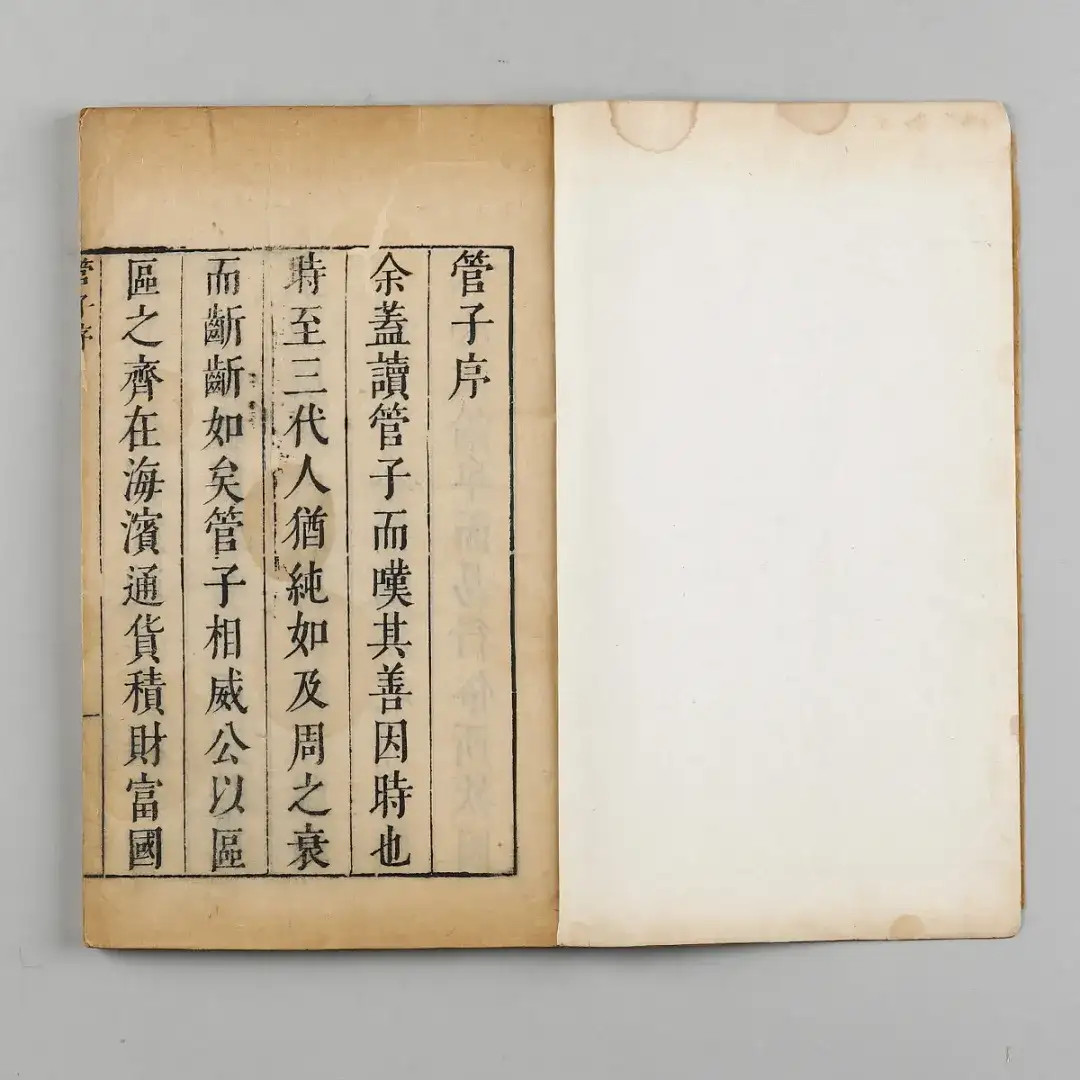 管子序
余蓋讀管子而嘆其善因時也
時至三代人猶純如及周之衰
而齗齗如矣管子相威公以區
區之齊在海濱通貨積財富國
管子序